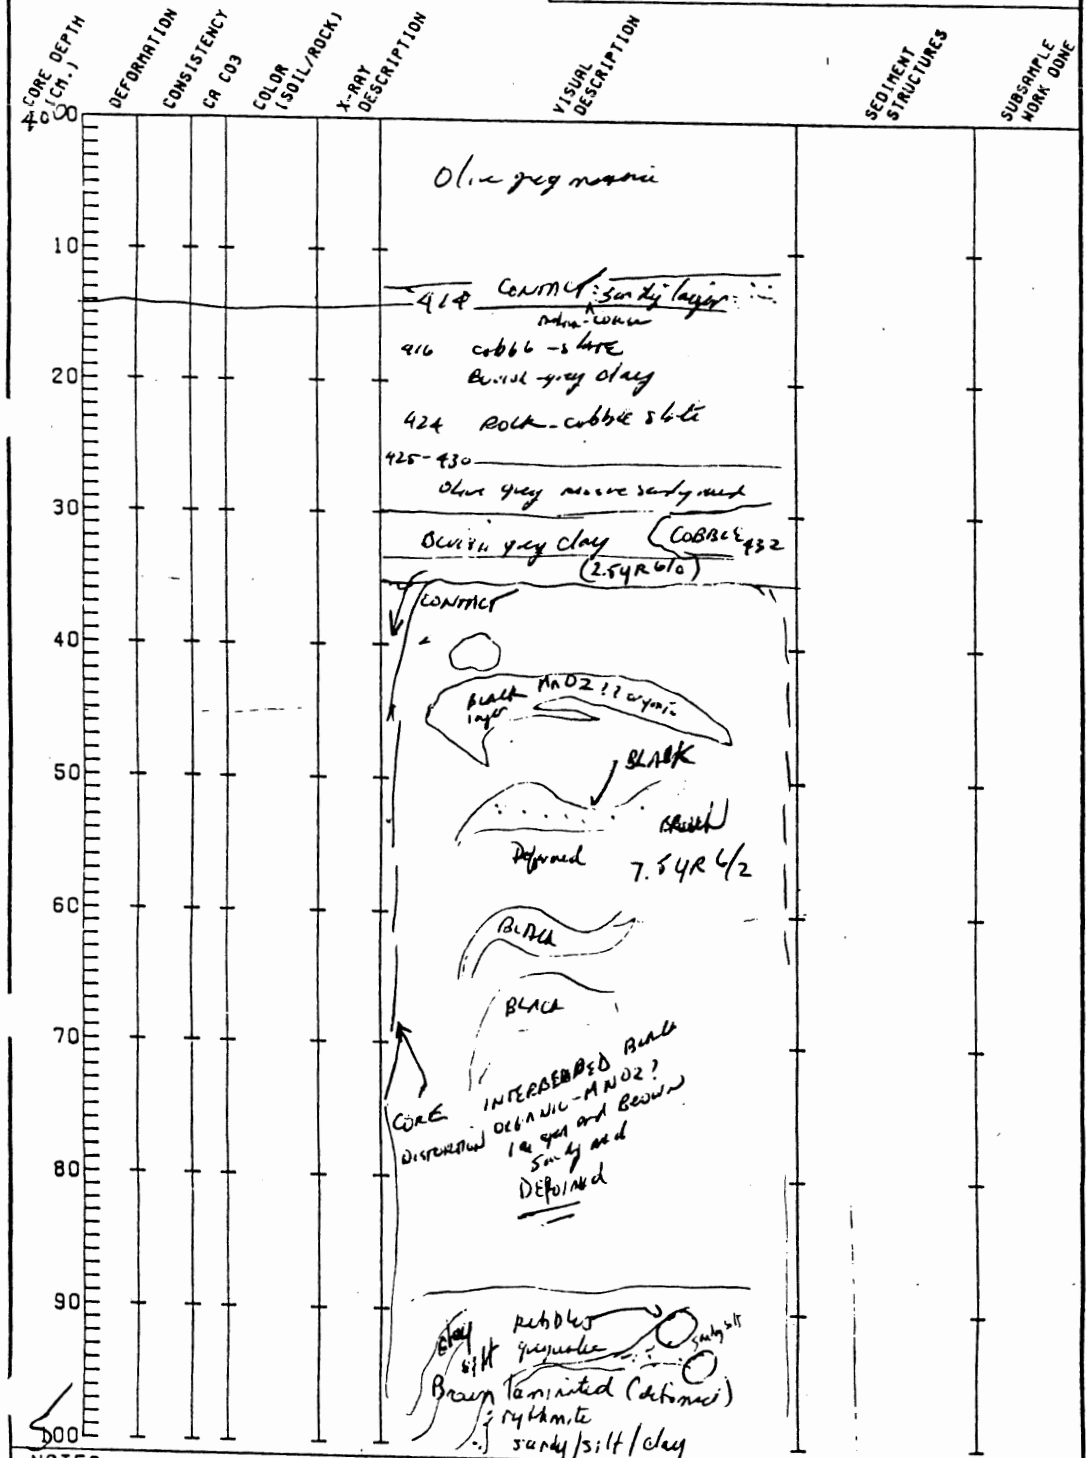 CORE DEPTH (CM.)
DEFORMATION
CONSISTENCY
CA CO3
COLOR (SOIL/ROCK)
X-RAY DESCRIPTION
VISUAL DESCRIPTION
SEDIMENT STRUCTURES
SUBSAMPLE WORK DONE
400
Olive grey
10
414 CONTACT: sandy layer
416 cobble - slate
grey clay
20
424 Rock - cobble slate
425-430
Olive grey massive sandy mud
30
grey clay COBBLE 432
(2.5YR 6/0)
CONTACT
40
BLACK layer MnO2 ?? organic
50
BLACK
BROWN
Deformed
7.5YR 6/2
60
BLACK
BLACK
70
CORE DISTORTION
INTERBEDDED BLACK
ORGANIC - MNO2?
layers and BROWN
Sandy mud
80
DEFORMED
90
clay
silt
pebbles
greywacke
sandy silt
Brown laminated (deformed)
rythmite
500
sandy/silt/clay
NOTES